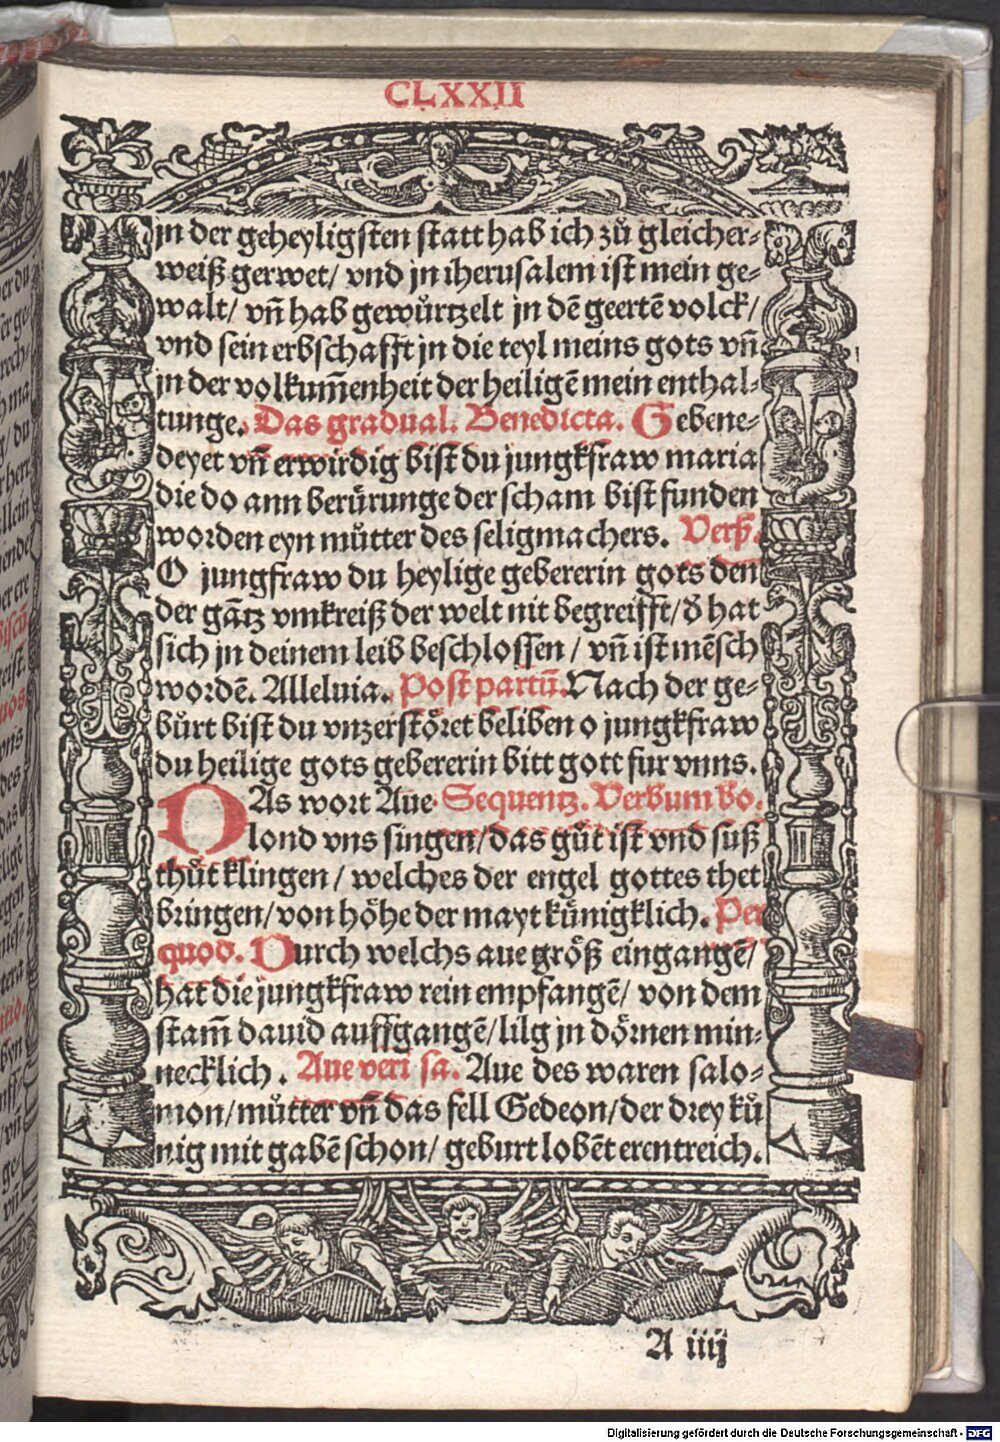 CLXXII
jn der geheyligsten statt hab ich zů gleicher⸗
weiß gerwet/ vnd jn iherusalem ist mein ge⸗
walt/ vñ hab gewůrtzelt jn dē geertē volck/
vnd sein erbschafft jn die teyl meins gots vñ
jn der volkum̄enheit der heiligē mein enthal⸗
tunge. Das gradual. Benedicta. Gebene⸗
deyet vñ erwirdig bist du jungkfraw maria
die do ann berůrunge der scham bist funden
worden eyn můtter des seligmachers. Verß.
O jungfraw du heylige gebererin gots den
der gātz vmkreiß der welt nit begreifft/ d̓ hat
sich jn deinem leib beschlossen / vñ ist mēsch
wordē. Alleluia. Post partū. Nach der ge⸗
bůrt bist du vnzerstöret beliben o jungkfraw
du heilige gots gebererin bitt gott fur vnns.
DAs wort Aue Sequentz. Verbum bo.
lond vns singen/ das gůt ist vnd suß
thůt klingen / welches der engel gottes thet
bringen/ von höhe der mayt kůnigklich. Per
quod. Durch welchs aue größ eingangē/
hat die jungkfraw rein empfangē/ von dem
stam̄ dauid auffgangē/ lilg jn dörnen min⸗
necklich . Aue veri sa. Aue des waren salo⸗
mon/ můtter vñ das fell Gedeon/ der drey ků
nig mit gabē schon/ geburt lobēt erentreich.
A iiij
Digitalisierung gefördert durch die Deutsche Forschungsgemeinschaft - DFG